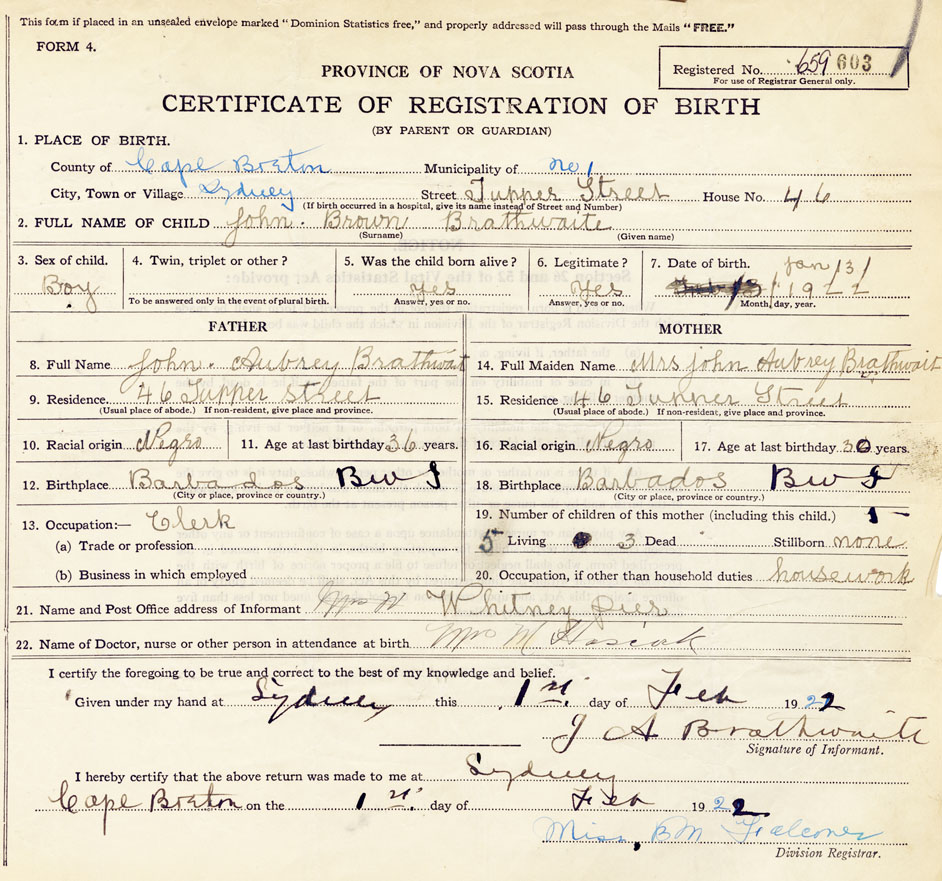 This form if placed in an unsealed envelope marked "Dominion Statistics free," and properly addressed will pass through the Mails "FREE."
FORM 4.
Registered No. 659 603
For use of Registrar General only.
PROVINCE OF NOVA SCOTIA
CERTIFICATE OF REGISTRATION OF BIRTH
(BY PARENT OR GUARDIAN)
1. PLACE OF BIRTH.
County of Cape Breton Municipality of no 1
City, Town or Village Sydney Street Tupper Street House No. 46
(If birth occurred in a hospital, give its name instead of Street and Number)
2. FULL NAME OF CHILD John. Brown Brathwaite
(Surname) (Given name)
3. Sex of child. 4. Twin, triplet or other? 5. Was the child born alive? 6. Legitimate? 7. Date of birth. Jan 31
Boy Yes Yes 1922
To be answered only in the event of plural birth. Answer, yes or no. Answer, yes or no. Month, day, year.
FATHER MOTHER
8. Full Name John. Aubrey Brathwait 14. Full Maiden Name Mrs John Aubrey Brathwait
9. Residence 46 Tupper Street 15. Residence 46 Tupper Street
(Usual place of abode.) If non-resident, give place and province. (Usual place of abode.) If non-resident, give place and province.
10. Racial origin Negro 11. Age at last birthday 36 years. 16. Racial origin Negro 17. Age at last birthday 30 years.
12. Birthplace Barbados BWI 18. Birthplace Barbados BWI
(City or place, province or country.) (City or place, province or country.)
13. Occupation:— Clerk 19. Number of children of this mother (including this child.)
(a) Trade or profession 5 Living 3 Dead Stillborn none
(b) Business in which employed 20. Occupation, if other than household duties housework
21. Name and Post Office address of Informant Whitney Pier
22. Name of Doctor, nurse or other person in attendance at birth Mrs M
I certify the foregoing to be true and correct to the best of my knowledge and belief.
Given under my hand at Sydney this 1st. day of Feb 1922
J A Brathwaite
Signature of Informant.
I hereby certify that the above return was made to me at Sydney
Cape Breton on the 1st. day of Feb 1922
Miss BM Falconer
Division Registrar.